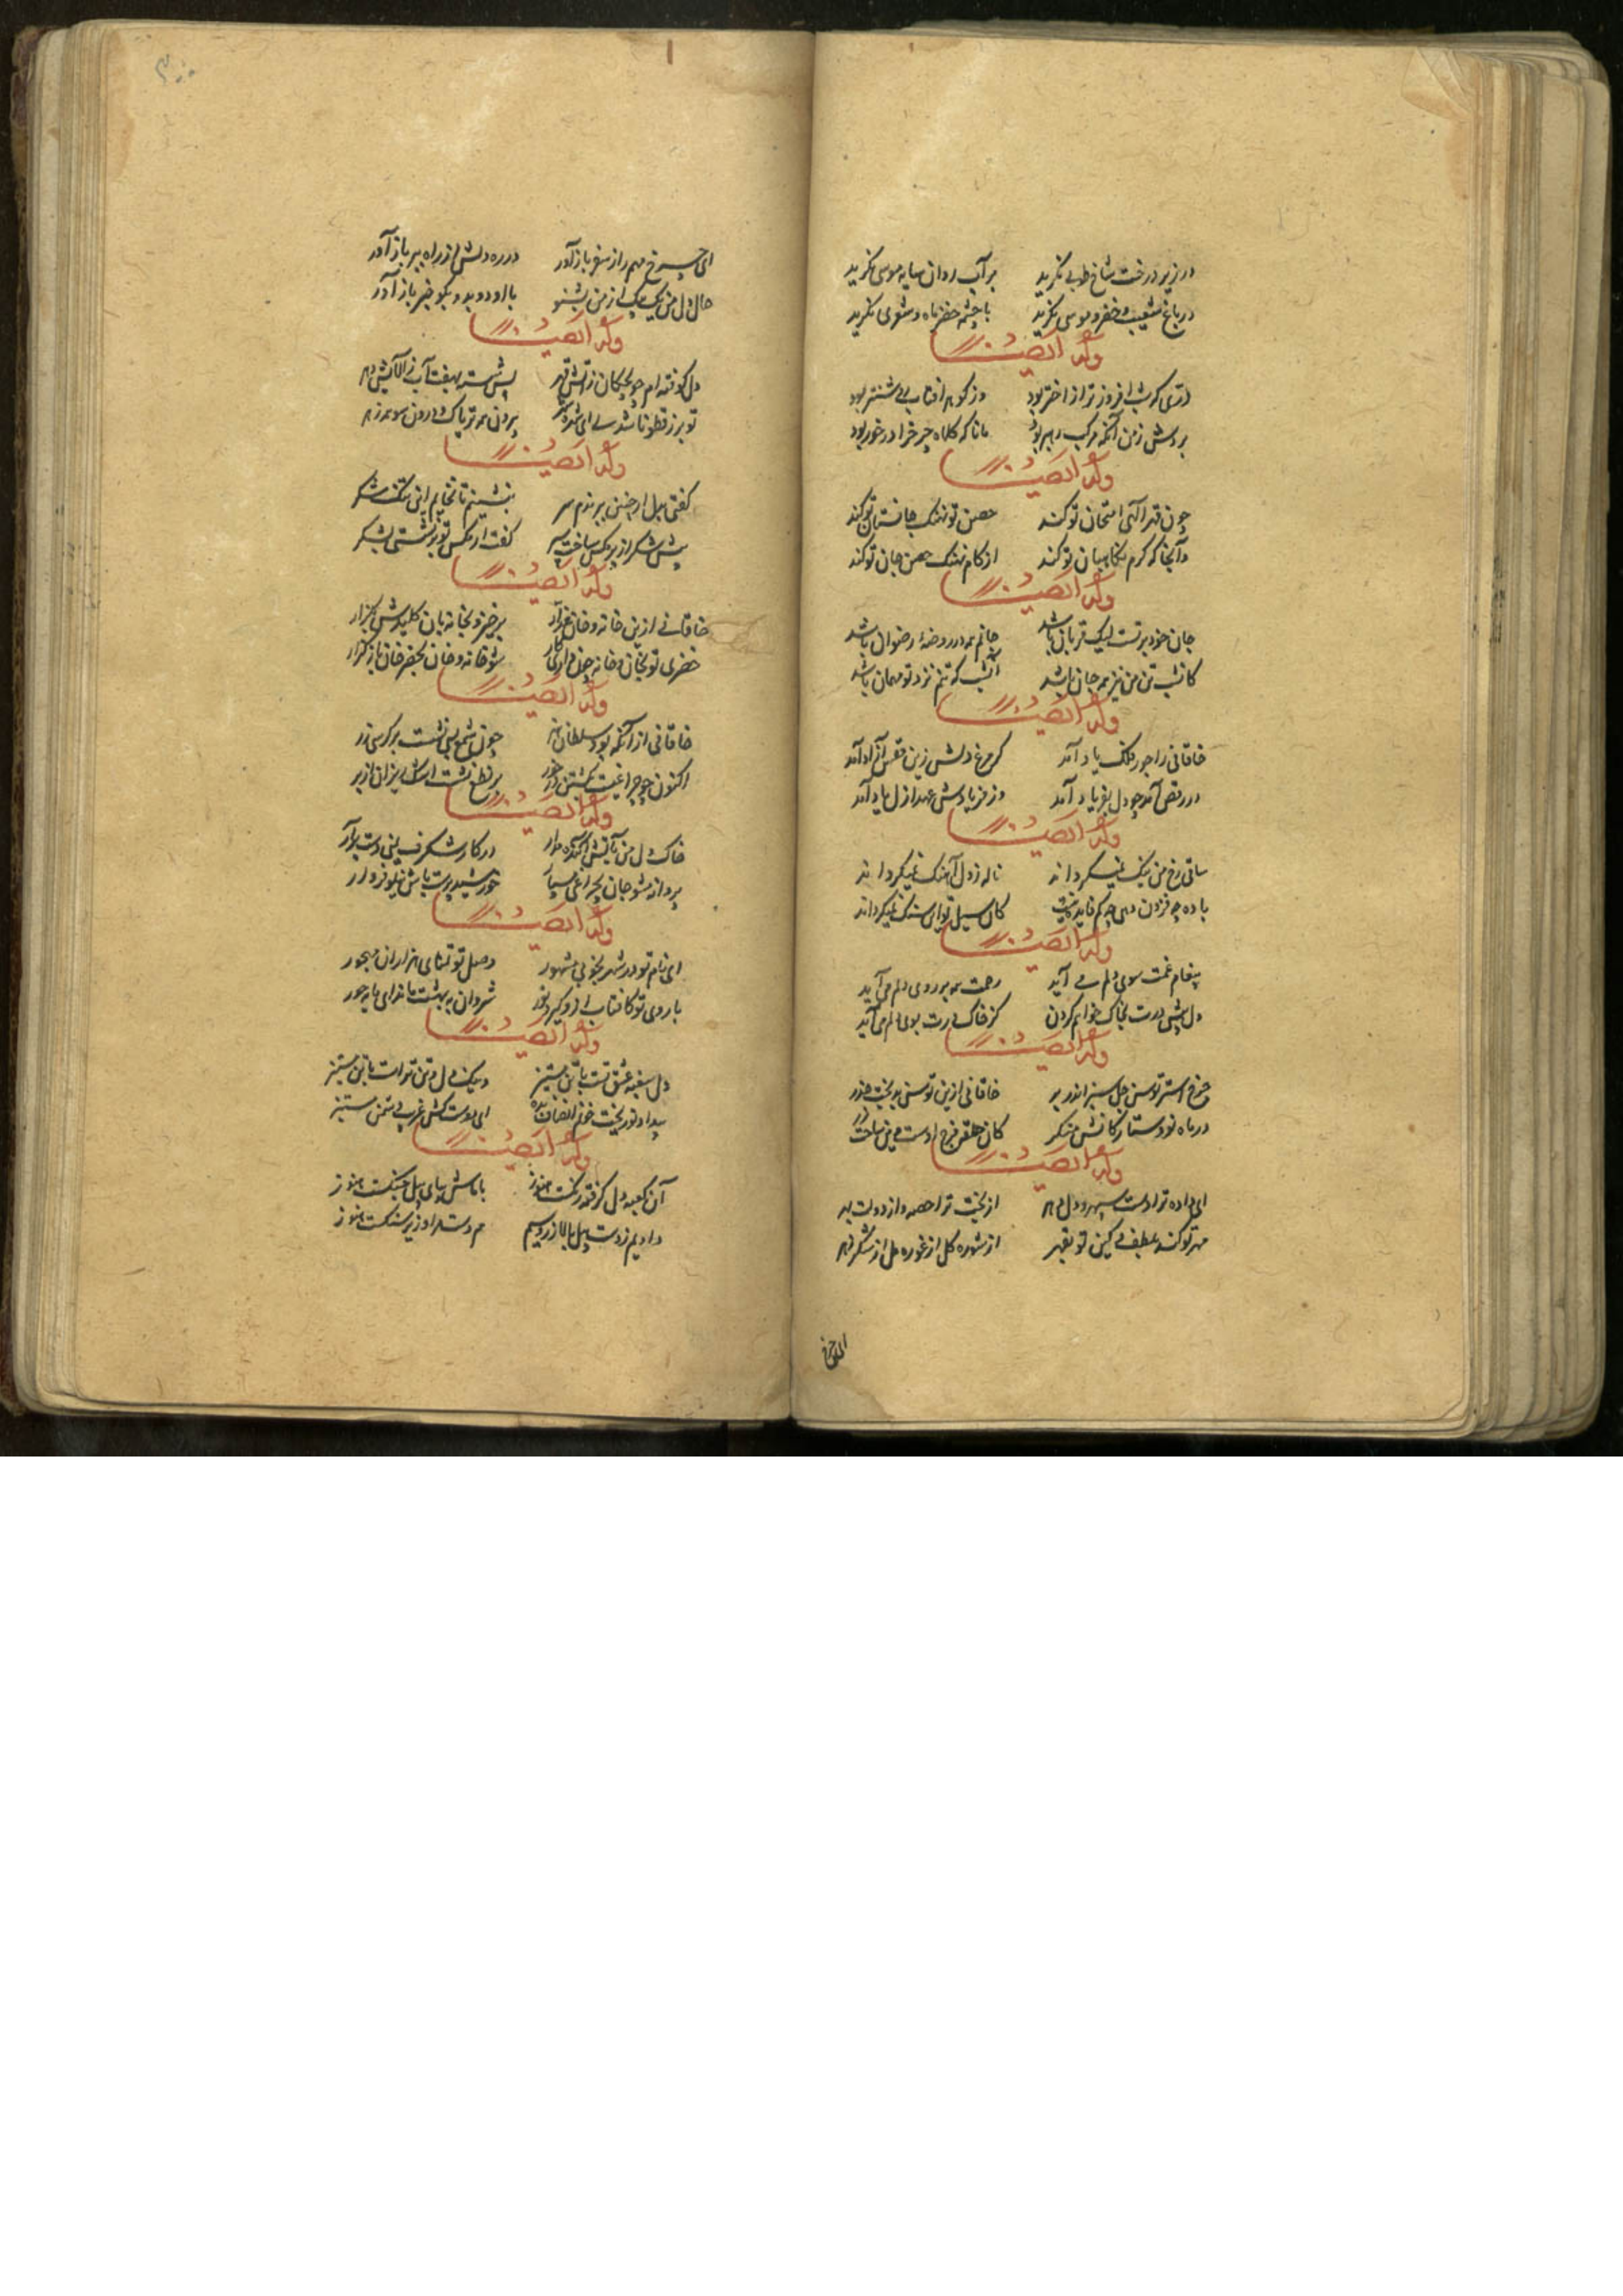 در زیر درخت شاخ طوبی نگرید بر آب روان سایه موسی نگرید
در باغ شعیب و خضر و موسی نگرید با چشمه خضر ماه و شعری نگرید
وله ایضا
دری که شب افروز تر از اختر بود وز گوهر آفتاب روشنتر بود
بردش ز من آنکه مرکب رهبر بود مانا که کلاه چرخ را در خور بود
وله ایضا
چون قهر الهی امتحان تو کند حصن تو نهنگ جانستان تو کند
و آنجا که کرم نگاهبان تو کند از کام نهنگ حصن جان تو کند
وله ایضا
جان خود بر تست لیک قربان باشد جانم همه در روضه رضوان باشد
کانشب تن من نیز همه جان باشد آنشب که تنم نزد تو مهمان باشد
وله ایضا
خاقانی را جور فلک یاد آمد کر مرغ دلش زین قفس آزاد آمد
در رقص آمد چو دل بفریاد آمد وز فریادش عهد ازل یاد آمد
وله ایضا
ساقی رخ من رنگ نمیگرداند ناله ز دل آهنگ نمیگرداند
باده چه فزون دهی چو کم فایده نیست کان سیل تو این سنگ نمیگرداند
وله ایضا
پیغام غمت سوی دلم می آید زحمت همه بر روی دلم می آید
دل پیش درت بخاک خواهم کردن کز خاک درت بوی دلم می آید
وله ایضا
چرخ استر توسن جل سبز اندر بر خاقانی ازین توسنی بدبخت حذر
در ماه نو و ستارگانش منگر کان حلقه فرج اوست وین ساخت زر
وله ایضا
ای داده ترا دست سپهر و دل دهر از بخت ترا حصه و از دولت بهر
مهر تو کند بلطف و کین تو بقهر از شوره گل از غوره مل از شکر زهر
ای چرخ مهم را ز سفر باز آور در ره دلش از راه ببر باز آور
حال دل من یک بیک از من بشنو با او دو بدو بگو خبر باز آور
وله ایضا
دل کوفته ام چو تخمکان ز آتش قهر پس شسته بهفت آب ز آلایش دهر
تو بزر قطونا شدی ای شهره شهر بیرون همه تریاک و درون سو همه زهر
وله ایضا
گفتی بدل ار چنین بپریدم سر بنشینم تا نخایم این تنگ شکر
پیش شکر از پر مگس ساخت سپر گفت ار مگس تو برنشستی بشکر
وله ایضا
خاقانی ازین خانه و خان غدار برخیز و بخانه بان کلیدش بگذار
خضری تو بخان و خانه چون داری کار شو خانه و خان بخضرخان باز گذار
وله ایضا
خاقانی از آنکه بود سلطان هنر چون شمع پی نشست بر کرسی زر
اکنون چو چراغیست بکشتن در خور بر نطع نشست اشک ریزان از بر
وله ایضا
خاک دل من بآتش آکنده مدار در کار شگرف بنی دست برآر
پروانه شو جان بچراغی بسپار خورشید پرست باش نیلوفروار
وله ایضا
ای نام تو در شهر بخوبی مشهور وصل تو تمنای هزاران مهجور
با روی تو کافتاب ازو گیرد نور شروان ببهشت ماند ای مایه حور
وله ایضا
دل سغبه عشق تست با تن مستیز و نیک دل و تن تراست با من مستیز
بیداد تو ریخت خونم انصاف بده ای دوست کش غریب دشمن مستیز
وله ایضا
آن کعبه دل گرفته رنگست هنوز با ماش بپای پیل جنگست هنوز
دادیم ز دست پیل بالا زر و سیم هم دست مراد زیر سنگست هنوز